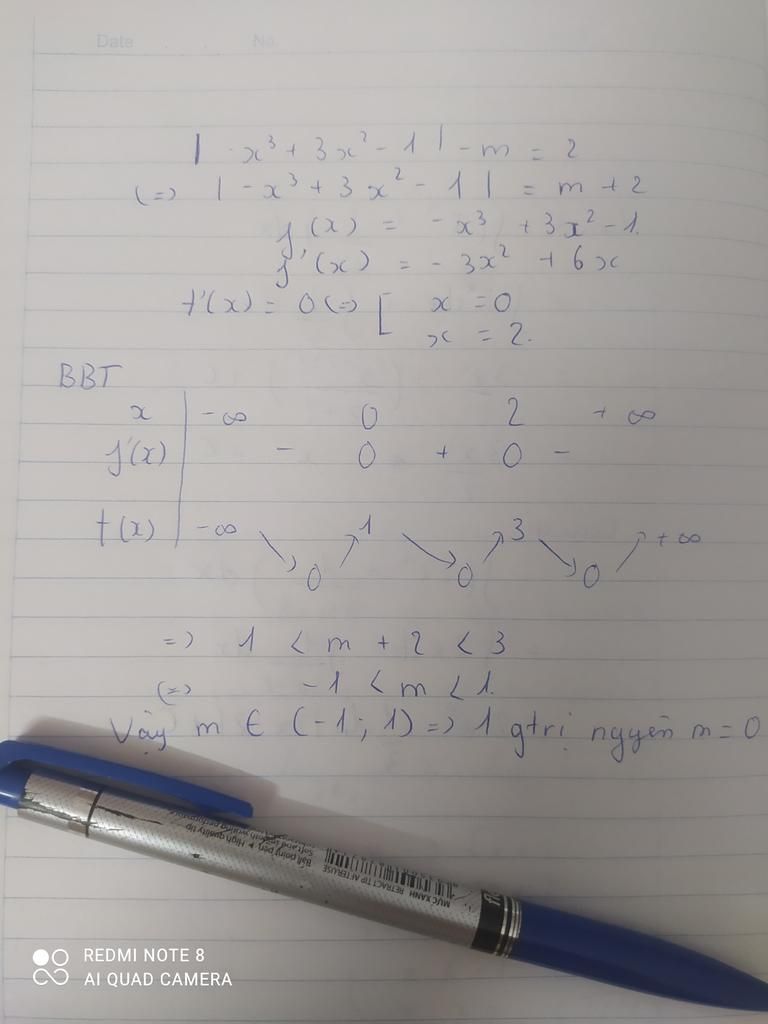 Date No.
| -x³ + 3x² - 1 | - m = 2
(=) | -x³ + 3x² - 1 | = m + 2
f(x) = -x³ + 3x² - 1.
f'(x) = -3x² + 6x
f'(x) = 0 (=) [ x = 0
x = 2.
BBT
x | -∞ 0 2 + ∞
f'(x) - 0 + 0 -
f(x) | -∞ ↘ 0 ↗ 1 ↘ 0 ↗ 3 ↘ 0 ↗ +∞
=) 1 < m + 2 < 3
(=) -1 < m < 1.
Vậy m ∈ (-1 ; 1) => 1 gtrị nguyên m = 0
Ball point pen ► High quality tip
MỰC XANH RETRACT TIP AFTER USE
REDMI NOTE 8
AI QUAD CAMERA